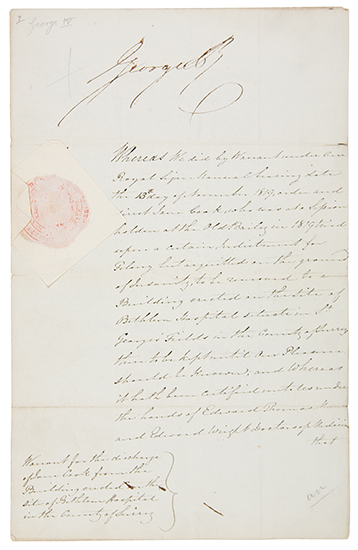 2 George IV
George R
Whereas We did by Warrant under Our
Royal Sign Manual bearing date
the 13th day of November 1819, order and
direct Jane Cook, who was at a Session
holden at the Old Bailey in 1819 tried
upon a certain Indictment for
Felony but acquitted on the ground
of Insanity, to be removed to a
Building erected on the Site of
Bethlem Hospital situate in St
Georges Fields in the County of Surrey
then to be kept until Our Pleasure
should be Known, and Whereas
it hath been certified unto Us under
the hands of Edward Thomas Monro
and Edward Wright Doctors of Medicine
that
Warrant for the discharge
of Jane Cook from the
Building erected on the
site of Bethlem Hospital
in the County of Surrey